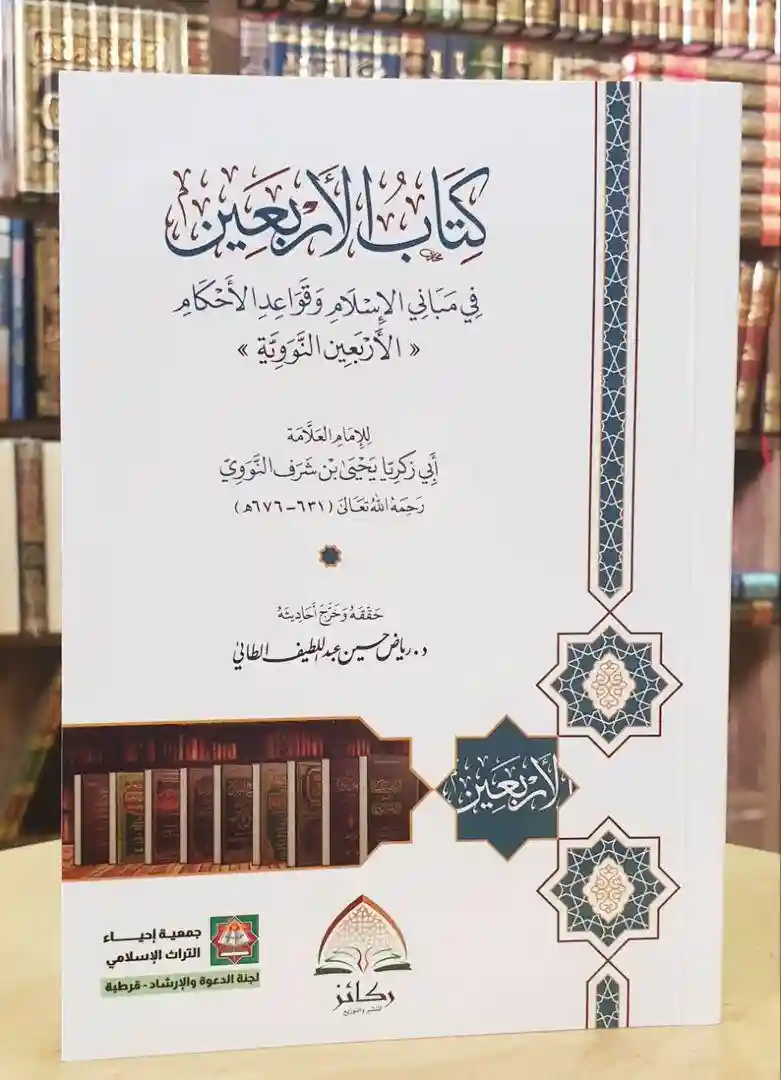 كِتَابُ الأَرْبَعِين
فِي مَبَانِي الإِسْلَامِ وَقَوَاعِدِ الأَحْكَامِ
« الأَرْبَعِين النَّوَوِيَّة »
لِلإِمَامِ العَلَّامَة
أَبِي زَكَرِيَّا يَحْيَى بْن شَرَف النَّوَوِيّ
رَحِمَهُ اللهُ تَعَالَى (٦٣١-٦٧٦هـ)
حَقَّقَهُ وَخَرَّجَ أَحَادِيثَهُ
د. رياض حسين عبد اللطيف الطائي
الأَرْبَعِين
جمعية إحياء
التراث الإسلامي
لجنة الدعوة والإرشاد - قرطبة
ركائز
للنشر والتوزيع